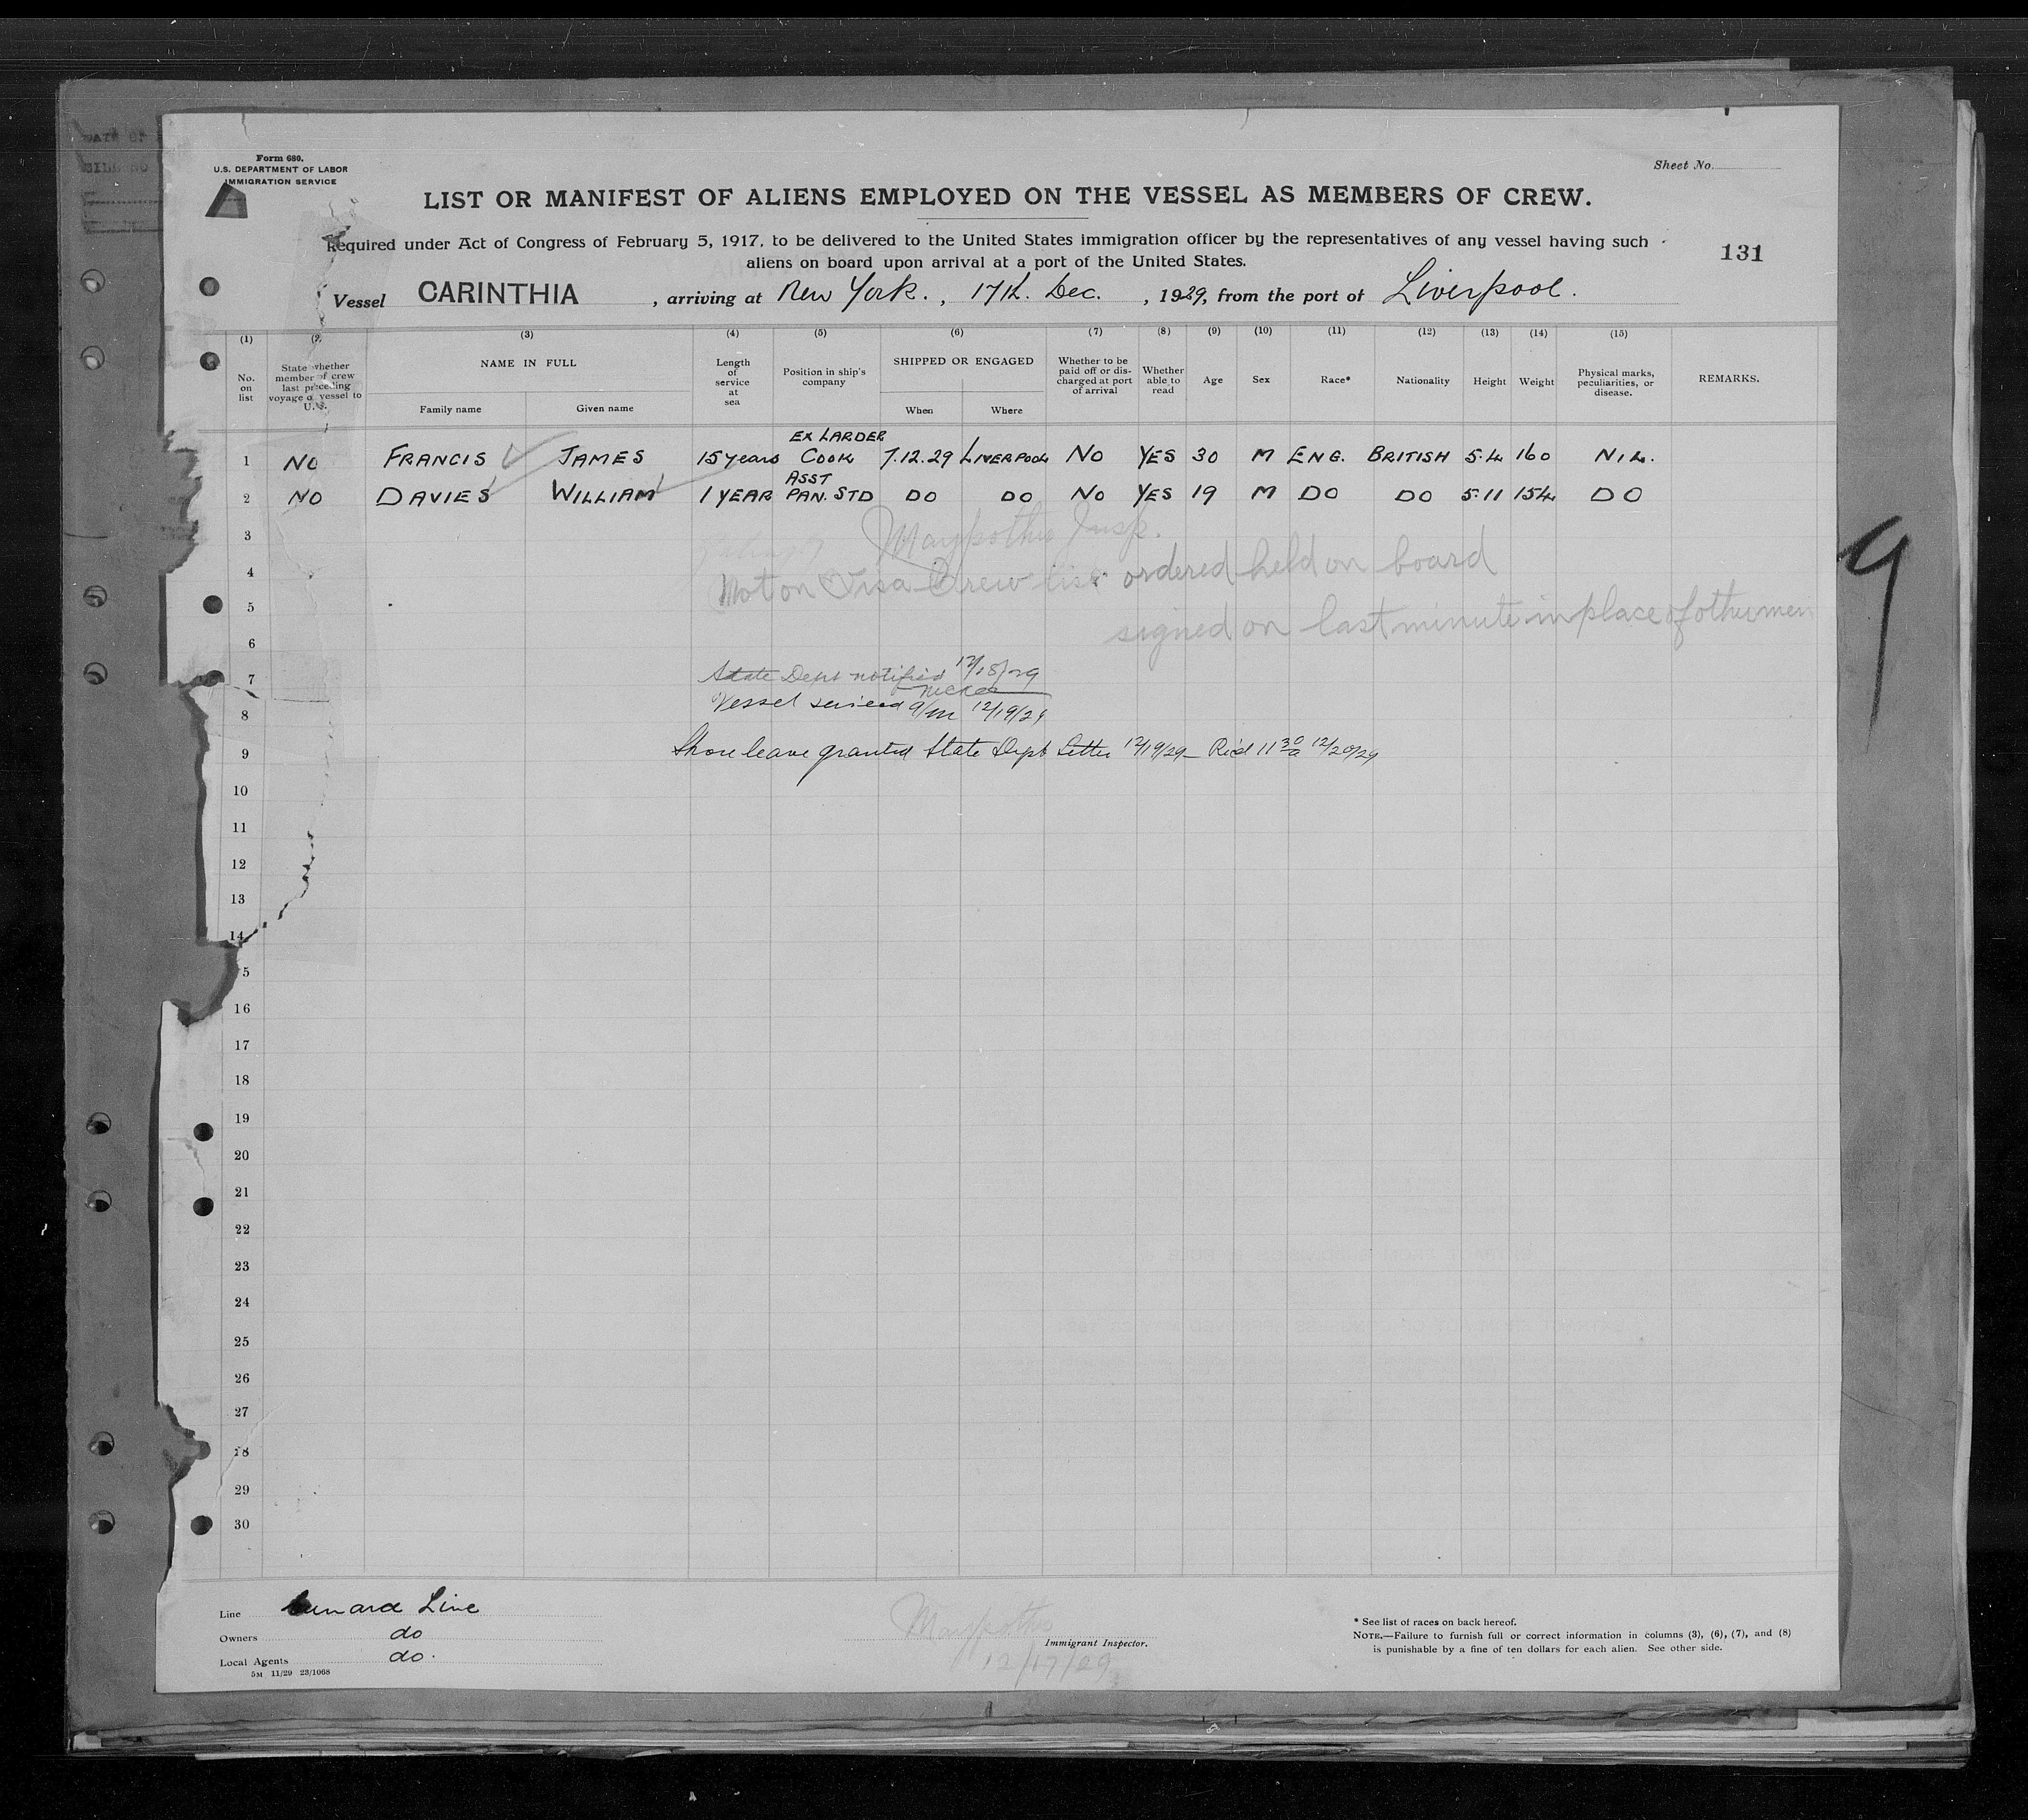 Form 680.
U.S. DEPARTMENT OF LABOR
IMMIGRATION SERVICE
Sheet No.
LIST OR MANIFEST OF ALIENS EMPLOYED ON THE VESSEL AS MEMBERS OF CREW.
Required under Act of Congress of February 5, 1917, to be delivered to the United States immigration officer by the representatives of any vessel having such
aliens on board upon arrival at a port of the United States.
131
Vessel CARINTHIA, arriving at New York., 17th. Dec., 1929, from the port of Liverpool.
(1) (2) (3) (4) (5) (6) (7) (8) (9) (10) (11) (12) (13) (14) (15)
No. on list
State whether member of crew last preceding voyage of vessel to U.S.
NAME IN FULL
Family name
Given name
Length of service at sea
Position in ship's company
SHIPPED OR ENGAGED
When
Where
Whether to be paid off or discharged at port of arrival
Whether able to read
Age
Sex
Race*
Nationality
Height
Weight
Physical marks, peculiarities, or disease.
REMARKS.
1 NO FRANCIS JAMES 15 years EX LARDER COOK 7.12.29 LIVERPOOL NO YES 30 M ENG. BRITISH 5.4 160 NIL.
2 NO DAVIES WILLIAM 1 YEAR ASST PAN. STD DO DO NO YES 19 M DO DO 5.11 154 DO
3 Insp.
4 Not on Visa Crew list ordered held on board
5
6 signed on last minute in place of other men
7 State Dept notified 12/18/29
8 Vessel 12/19/29
9 Shore leave granted State Dept Letter 12/19/29 - Rec'd 11 30 a 12/20/29
10
11
12
13
14
5
16
17
18
19
20
21
22
23
24
25
26
27
28
29
30
9
Line Cunard Line
Owners do
Local Agents do.
5M 11/29 23/1068
Immigrant Inspector.
12/17/29
* See list of races on back hereof.
NOTE.—Failure to furnish full or correct information in columns (3), (6), (7), and (8)
is punishable by a fine of ten dollars for each alien. See other side.